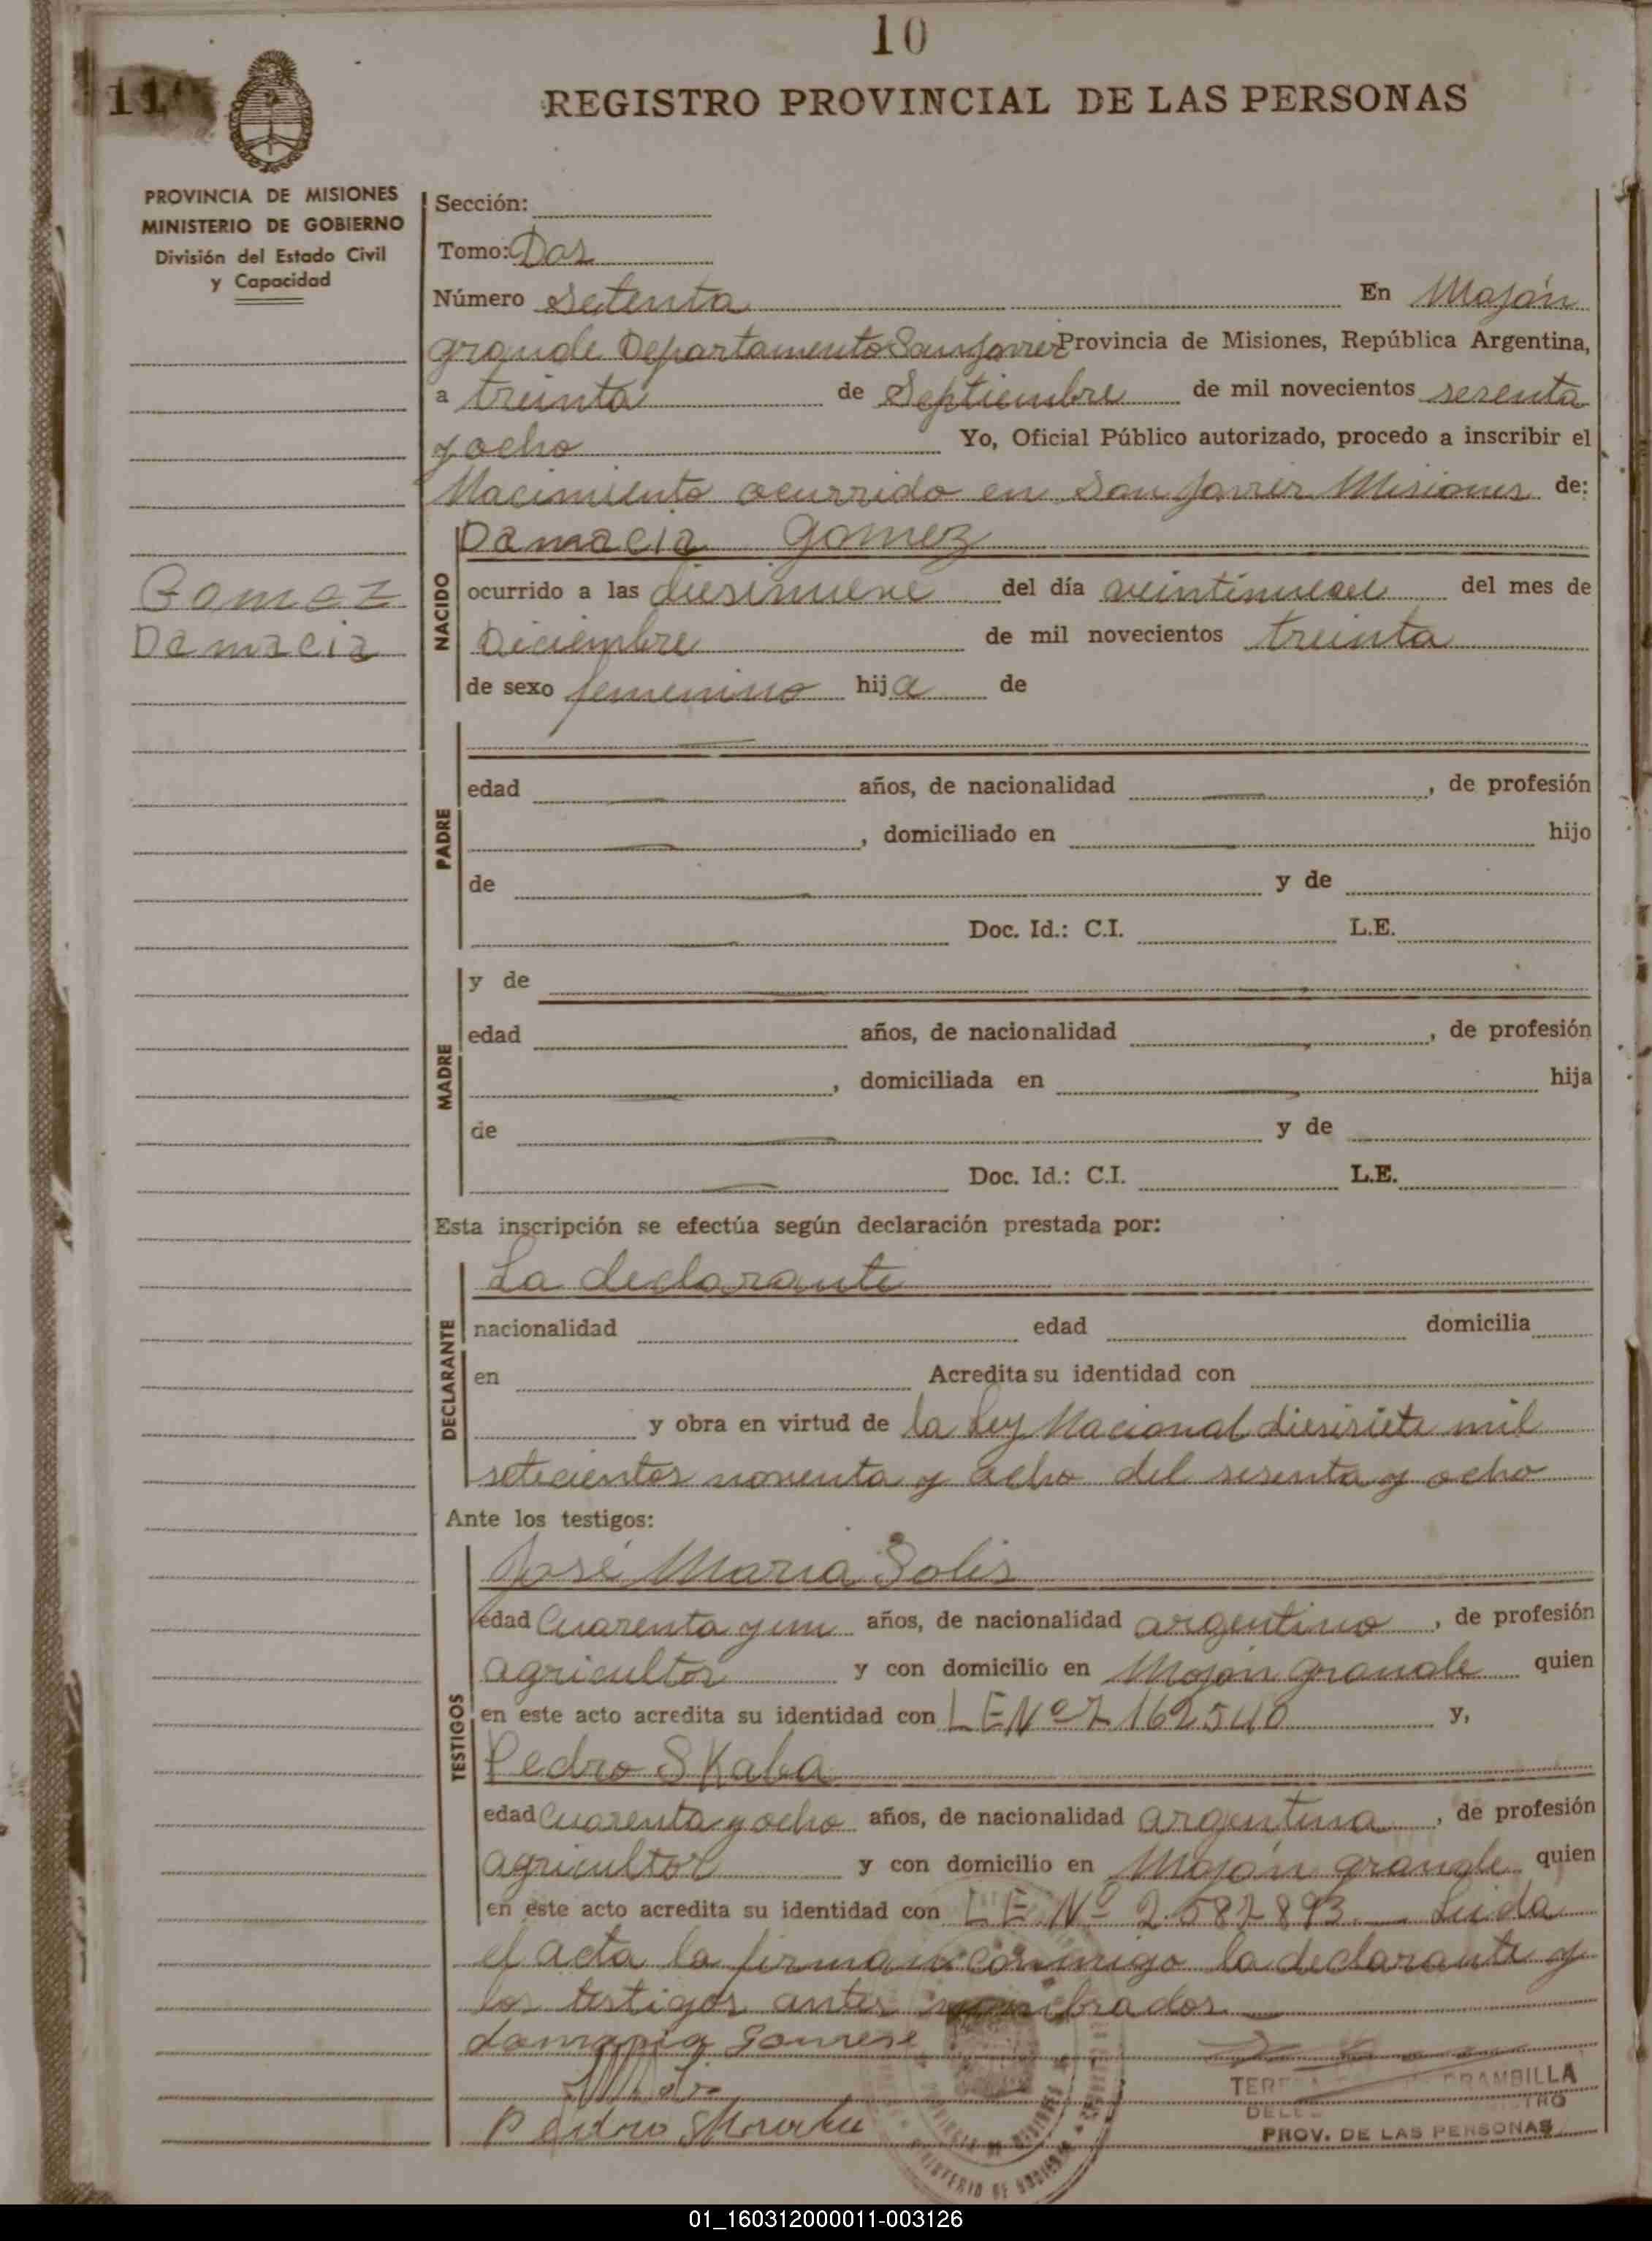 10
11
REGISTRO PROVINCIAL DE LAS PERSONAS
PROVINCIA DE MISIONES
MINISTERIO DE GOBIERNO
División del Estado Civil
y Capacidad
Sección:
Tomo: Dos
Número setenta En Mojón
grande Departamento San Javier Provincia de Misiones, República Argentina,
a treinta de Septiembre de mil novecientos sesenta
y ocho Yo, Oficial Público autorizado, procedo a inscribir el
Nacimiento ocurrido en San Javier Misiones de:
Damacia Gomez
Gomez
Damacia
NACIDO
ocurrido a las diesinueve del día veintinueve del mes de
Diciembre de mil novecientos treinta
de sexo femenino hija de
PADRE
edad años, de nacionalidad , de profesión
, domiciliado en hijo
de y de
Doc. Id.: C.I. L.E.
MADRE
y de
edad años, de nacionalidad , de profesión
, domiciliada en hija
de y de
Doc. Id.: C.I. L.E.
Esta inscripción se efectúa según declaración prestada por:
DECLARANTE
La declarante
nacionalidad edad domicilia
en Acredita su identidad con
y obra en virtud de la Ley Nacional diesisiete mil
setecientos noventa y ocho del sesenta y ocho
Ante los testigos:
TESTIGOS
José Maria Solis
edad Cuarenta y un años, de nacionalidad argentino, de profesión
agricultor y con domicilio en Mojón grande quien
en este acto acredita su identidad con L E Nº 7162540 y,
Pedro SKaba
edad Cuarenta y ocho años, de nacionalidad argentina, de profesión
agricultor y con domicilio en Mojón grande quien
en este acto acredita su identidad con L E Nº 2.587893. Leida
el acta la firman conmigo la declarante y
los testigos antes nombrados
BRAMBILLA
PROV. DE LAS PERSONAS
01_160312000011-003126